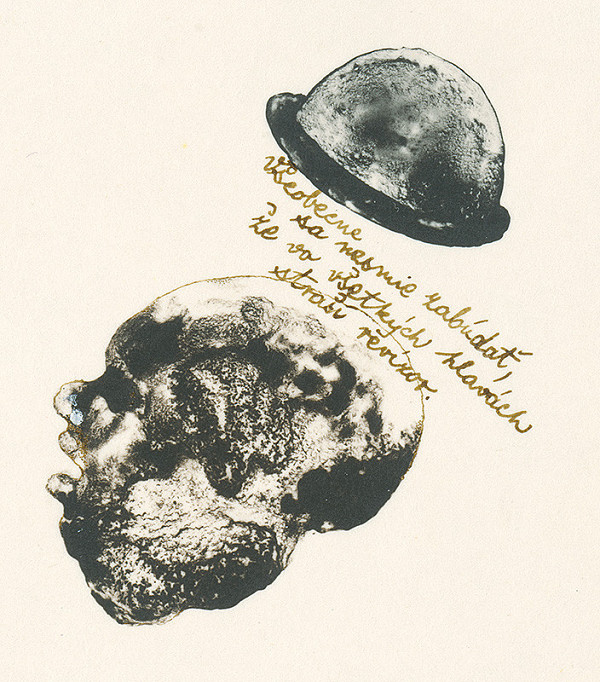 Všeobecne
sa nesmie zabúdať,
že vo všetkých hlavách
straší revizor.